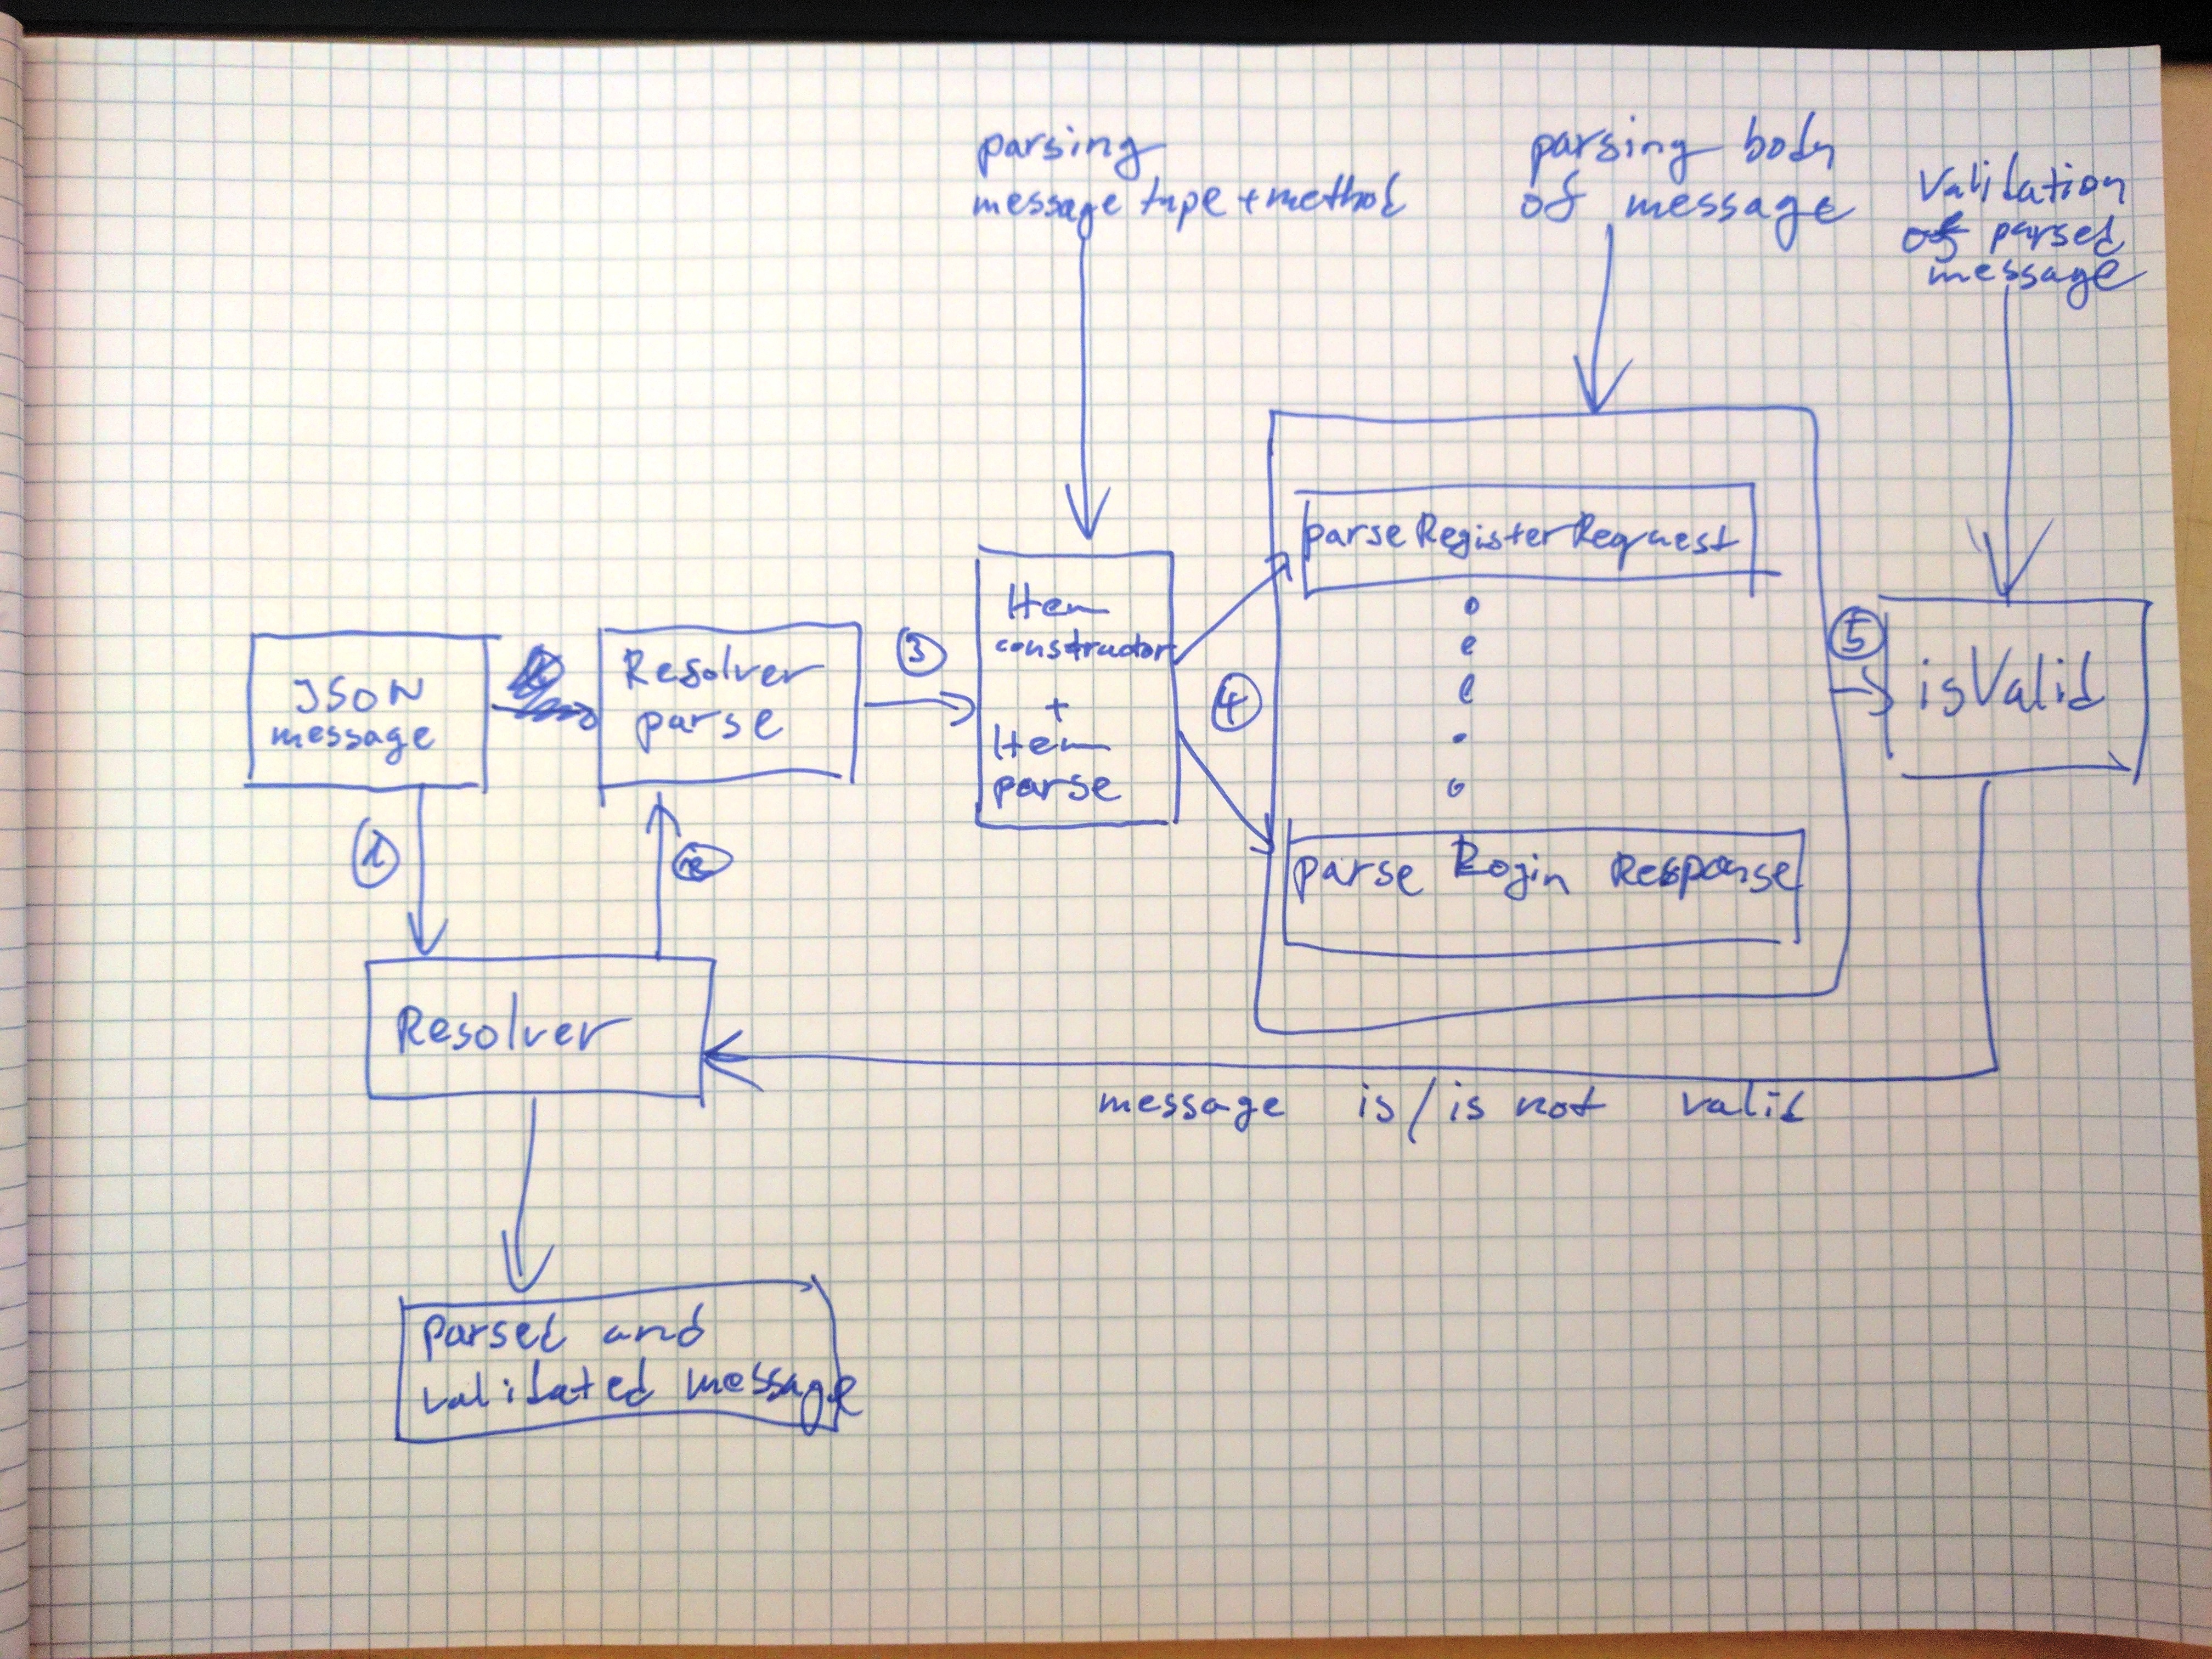 parsing
message type + method
parsing body
of message
Validation
of parsed
message
JSON
message
Resolver
parse
3
Item
constructor
+
Item
parse
4
parseRegisterRequest
parse Login Response
5
isValid
1
2
Resolver
message is/is not valid
parsed and
validated message